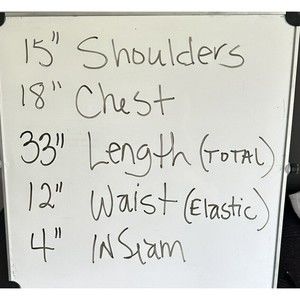 15" Shoulders
18" Chest
33" Length (TOTAL)
12" Waist (Elastic)
4" INSeam